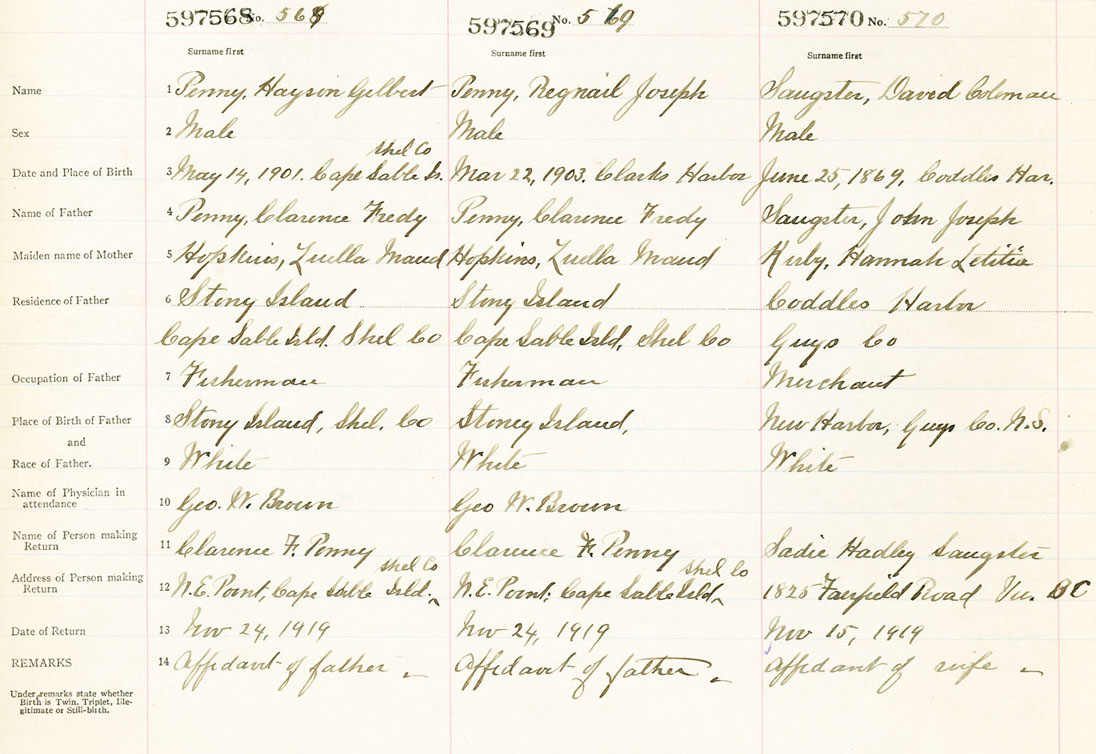 597568 No. 568
597569 No. 569
597570 No. 570
Surname first Surname first Surname first
Name 1 Penny, Hayson Gilbert Penny, Regnail Joseph Sangster, David Coleman
Sex 2 Male Male Male
Shel Co
Date and Place of Birth 3 May 14, 1901. Cape Sable Is. Mar 22, 1903. Clarks Harbor June 25, 1869, Coddles Har.
Name of Father 4 Penny, Clarence Fredy Penny, Clarence Fredy Sangster, John Joseph
Maiden name of Mother 5 Hopkins, Luella Maud Hopkins, Luella Maud Kirby, Hannah Letitia
Residence of Father 6 Stony Island Stony Island Coddles Harbor
Cape Sable Isld. Shel Co Cape Sable Isld, Shel Co Guys Co
Occupation of Father 7 Fisherman Fisherman Merchant
Place of Birth of Father 8 Stony Island, Shel. Co Stoney Island, New Harbor, Guys Co. N.S.
and
Race of Father. 9 White White White
Name of Physician in
attendance 10 Geo. W. Brown Geo W. Brown
Name of Person making
Return 11 Clarence F. Penny Clarence F. Penny Sadie Hadley Sangster
Shel Co Shel Co
Address of Person making
Return 12 N.E. Point, Cape Sable Isld. N.E. Point, Cape Sable Isld 1825 Fairfield Road Vic. BC
Date of Return 13 Nov 24, 1919 Nov 24, 1919 Nov 15, 1919
REMARKS 14 Affidavit of father Affidavit of father Affidavit of wife
Under remarks state whether
Birth is Twin, Triplet, Ille-
gitimate or Still-birth.